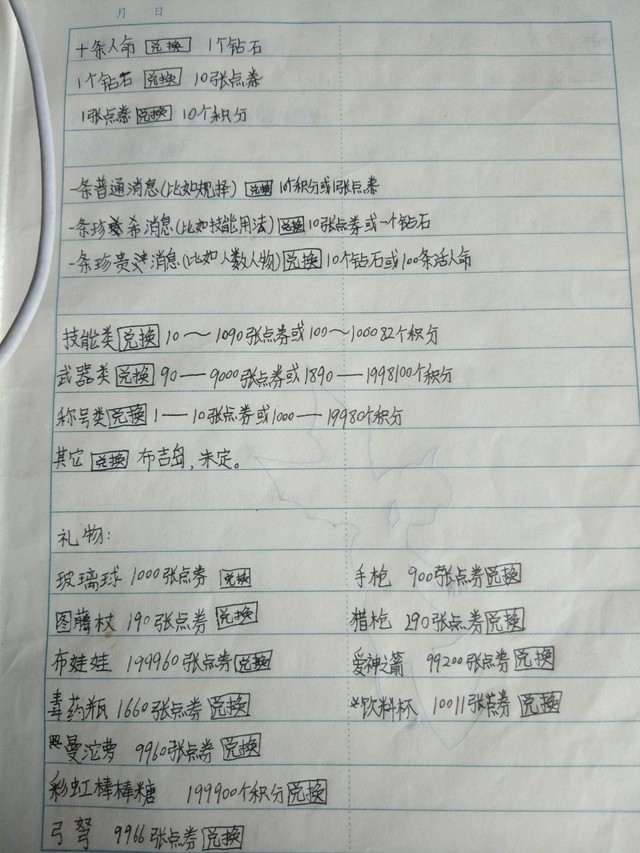 月 日
十条人命 兑换 1个钻石
1个钻石 兑换 10张点券
1张点券 兑换 10个积分
一条普通消息(比如规择) 兑换 10个积分或1张点券
一条珍希消息(比如技能用法) 兑换 10张点券或一个钻石
一条珍贵消息(比如人数人物) 兑换 10个钻石或100条活人命
技能类 兑换 10～1090张点券或100～100082个积分
武器类 兑换 90—9000张点券或1890—1998100个积分
称号类 兑换 1—10张点券或1000—19980个积分
其它 兑换 布吉岛,未定。
礼物:
玻璃球 1000张点券 兑换 手枪 900张点券 兑换
图腾杖 190张点券 兑换 猎枪 290张点券 兑换
布娃娃 199960张点券 兑换 爱神之箭 99200张点券 兑换
毒药瓶 1660张点券 兑换 *饮料杯 10011张点券 兑换
曼沱萝 9960张点券 兑换
彩虹棒棒糖 199900个积分 兑换
弓弩 9966张点券 兑换